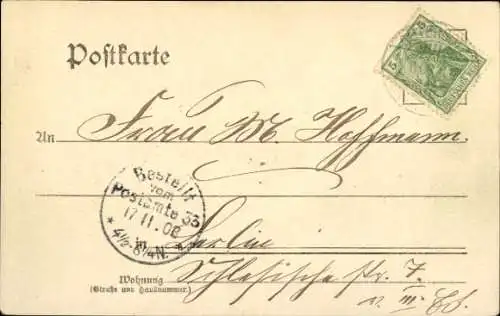 Postkarte
An Frau M. Hoffmann.
Bestellt
vom
Postamte 33
17 11.02
4½-8¼N.
in Berlin
Wohnung
(Straße und Hausnummer.)
Schlesische Str. 7
v. III